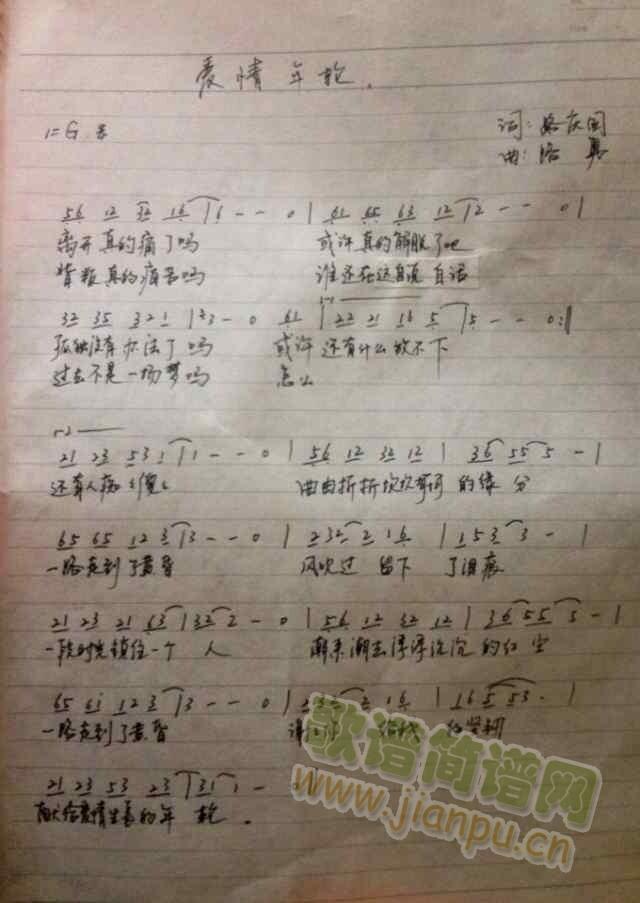 爱情年轮.
1=G
词: 
曲: 洛
56 12 32 16 | 6 - - 0 | 61 65 63 12 | 2 - - 0 |
离开真的痛了吗 或许真的解脱了吧
真的痛苦吗 谁还在这自说自话
32 35 321 | 23 - 0 61 | 22 21 16 5 | 5 - - 0 :|
孤独没有办法了吗 或许还有什么放不下
过去不是一场梦吗 怎么
21 23 531 | 1 - - 0 | 56 12 32 12 | 36 55 5 - |
还有人 曲曲折折坎坎坷坷的缘分
65 65 12 3 | 3 - - 0 | 232 2 16 | 153 3 - |
一路走到了黄昏 风吹过 留下 了泪痕
21 23 21 63 | 32 2 - 0 | 56 12 32 12 | 36 55 5 - |
一段时光锁住一个 人 潮来潮去浮浮沉沉的红尘
65 61 12 3 | 3 - - 0 |
一路走到了黄昏
21 23 53 23 | 31 1 -
献给爱情生长的年 轮.
歌谱简谱网
www.jianpu.cn